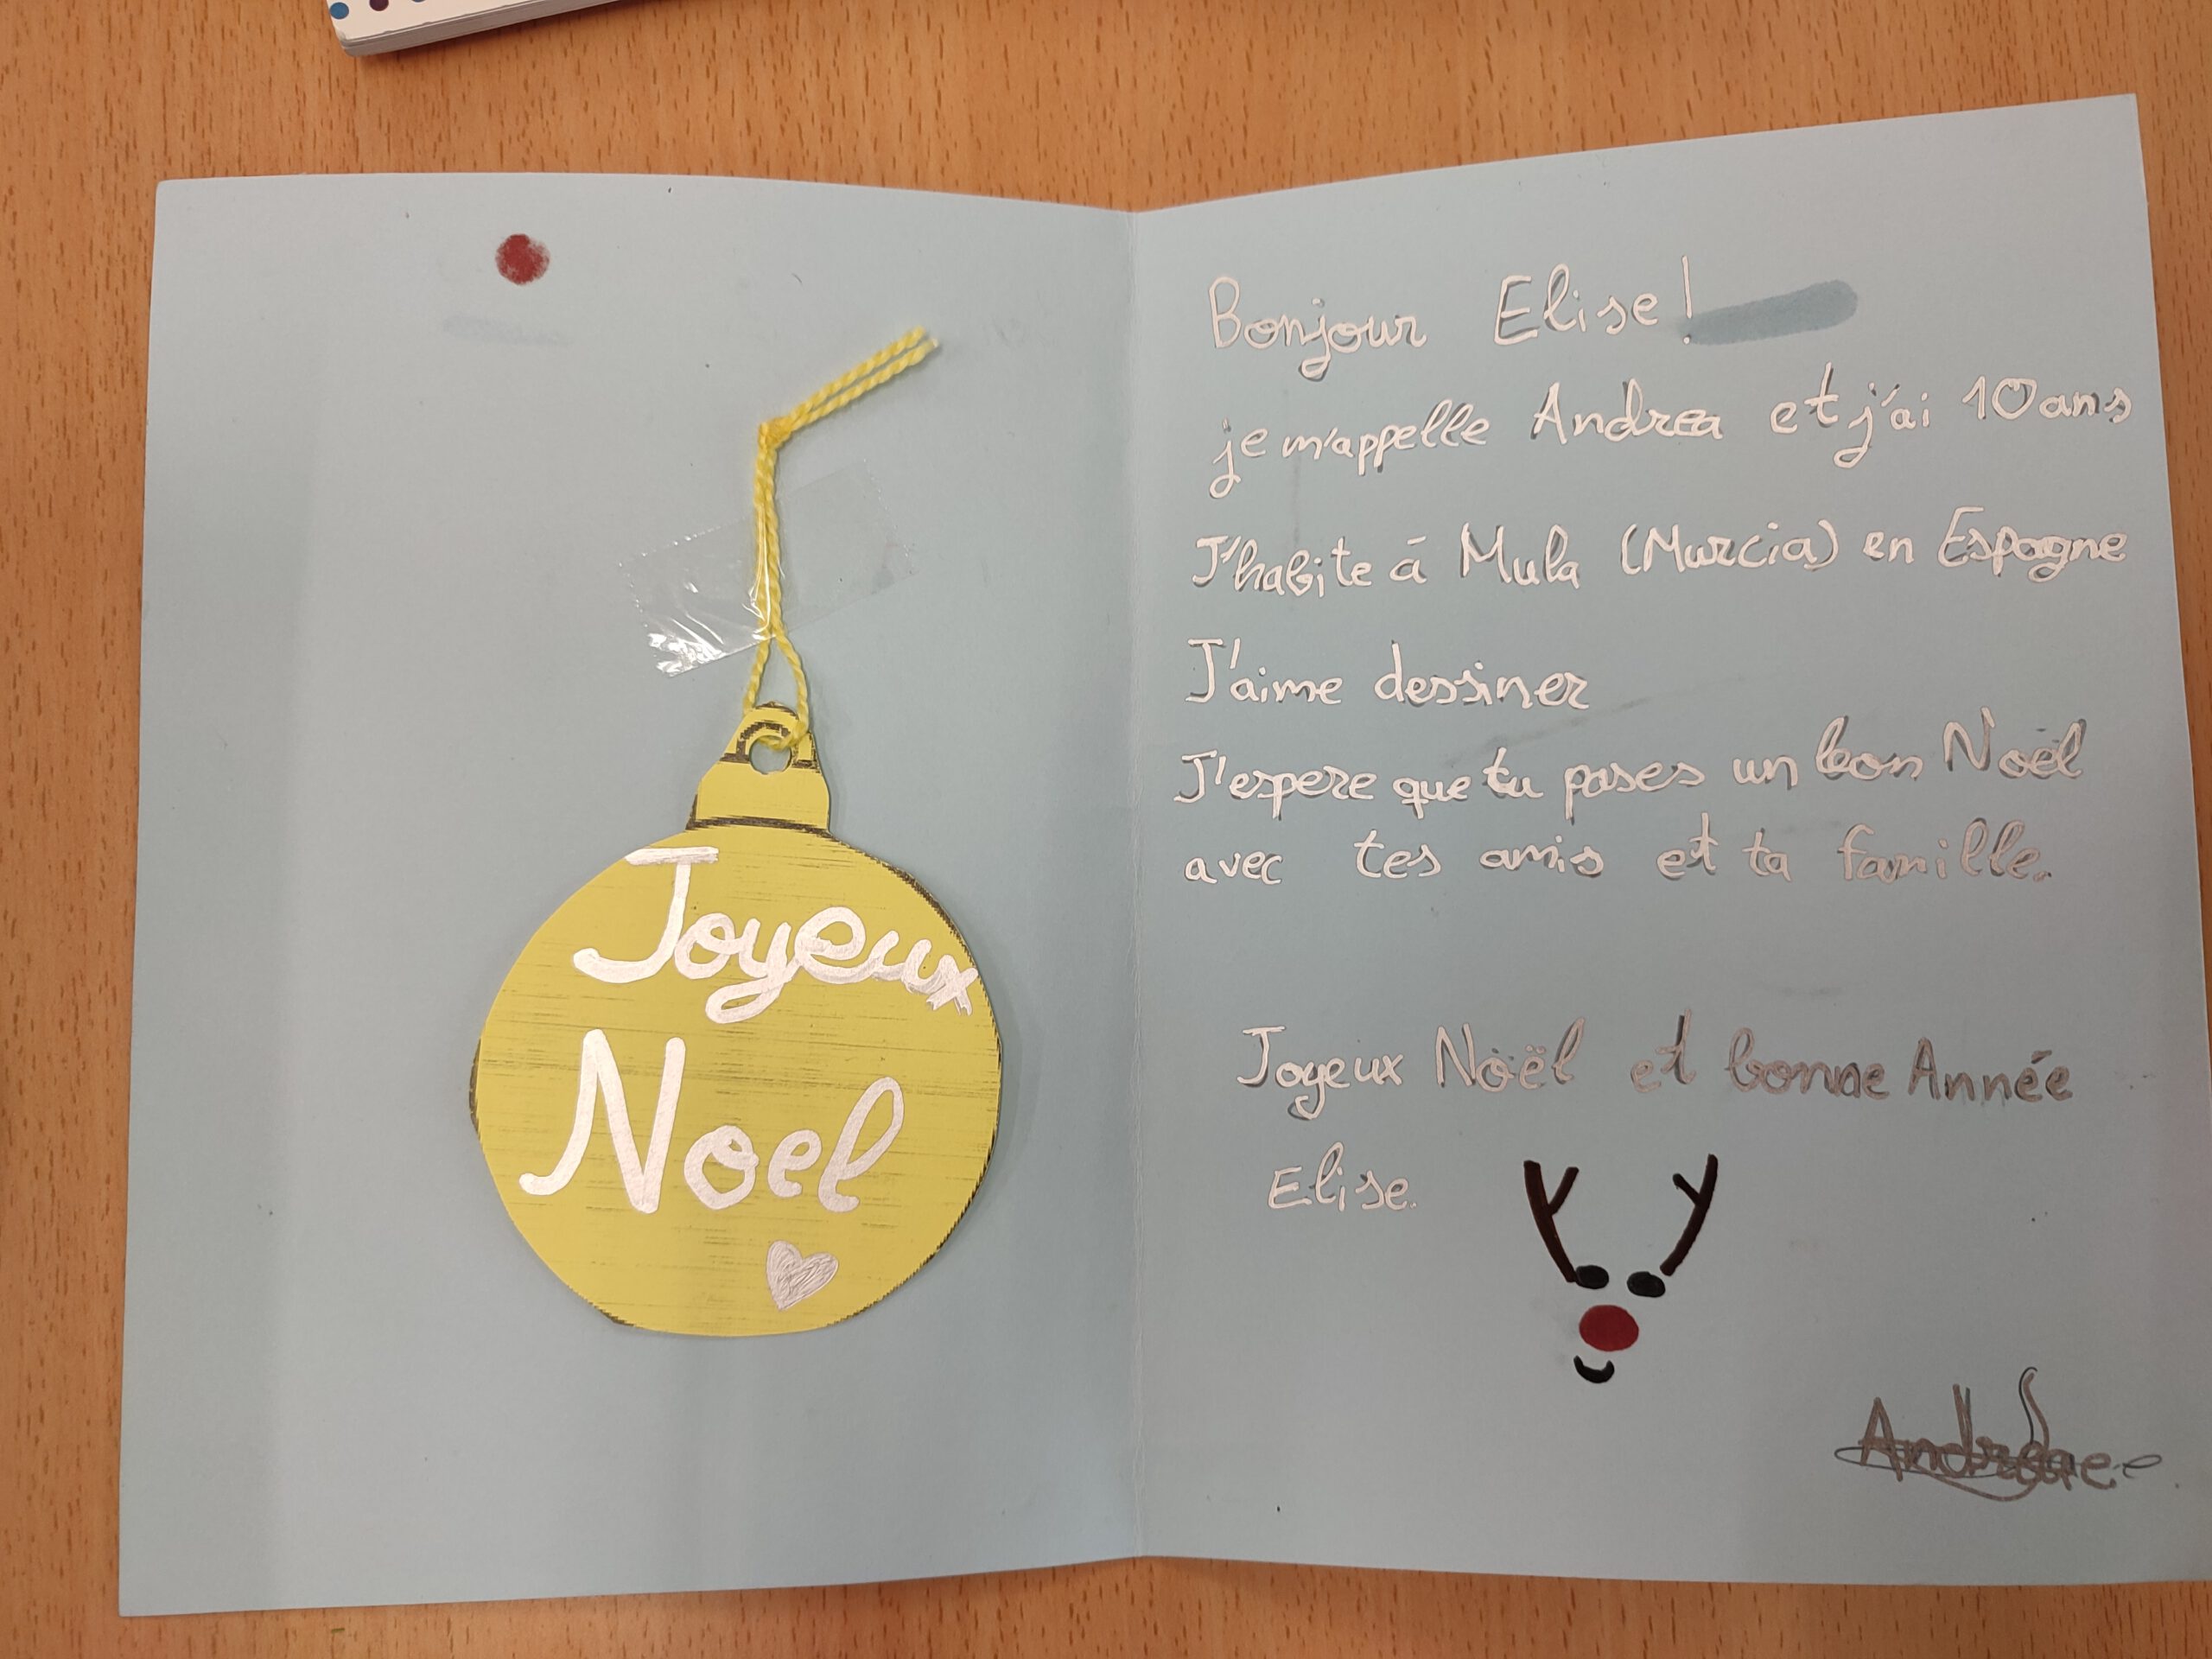 Joyeux
Noel
Bonjour Elise!
je m'appelle Andrea et j'ai 10 ans
J'habite á Mula (Murcia) en Espagne
J'aime dessiner
J'espere que tu pases un bon Noël
avec tes amis et ta famille.
Joyeux Noël et bonne Année
Elise.